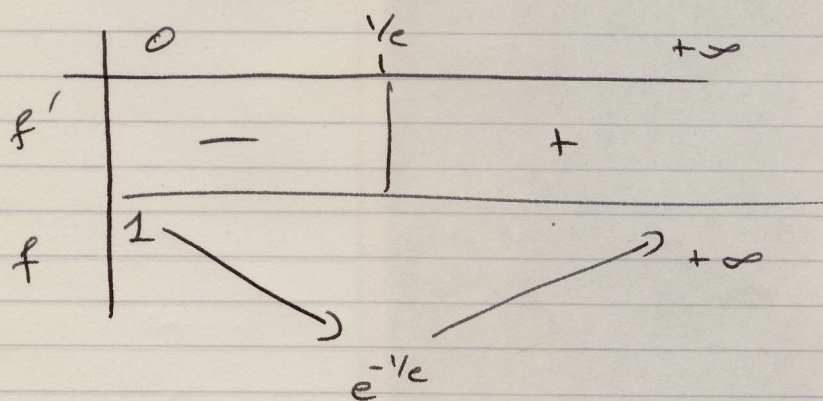 0 1/e +∞
f' − +
f 1 +∞
e^{-1/e}